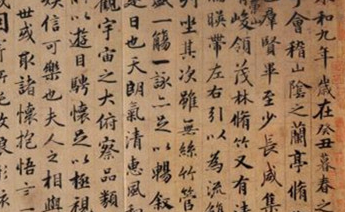 永和九年歲在癸丑暮春之
于會稽山陰之蘭亭脩
羣賢畢至少長咸集
有峻領茂林脩竹又有清
暎帶左右引以為流觴
列坐其次雖無絲竹管
盛一觴一詠亦足以暢叙
是日也天朗氣清惠風和
觀宇宙之大俯察品類
以遊目騁懷足以極視
娛信可樂也夫人之相與
世或取諸懷抱悟言一
所託放浪形骸